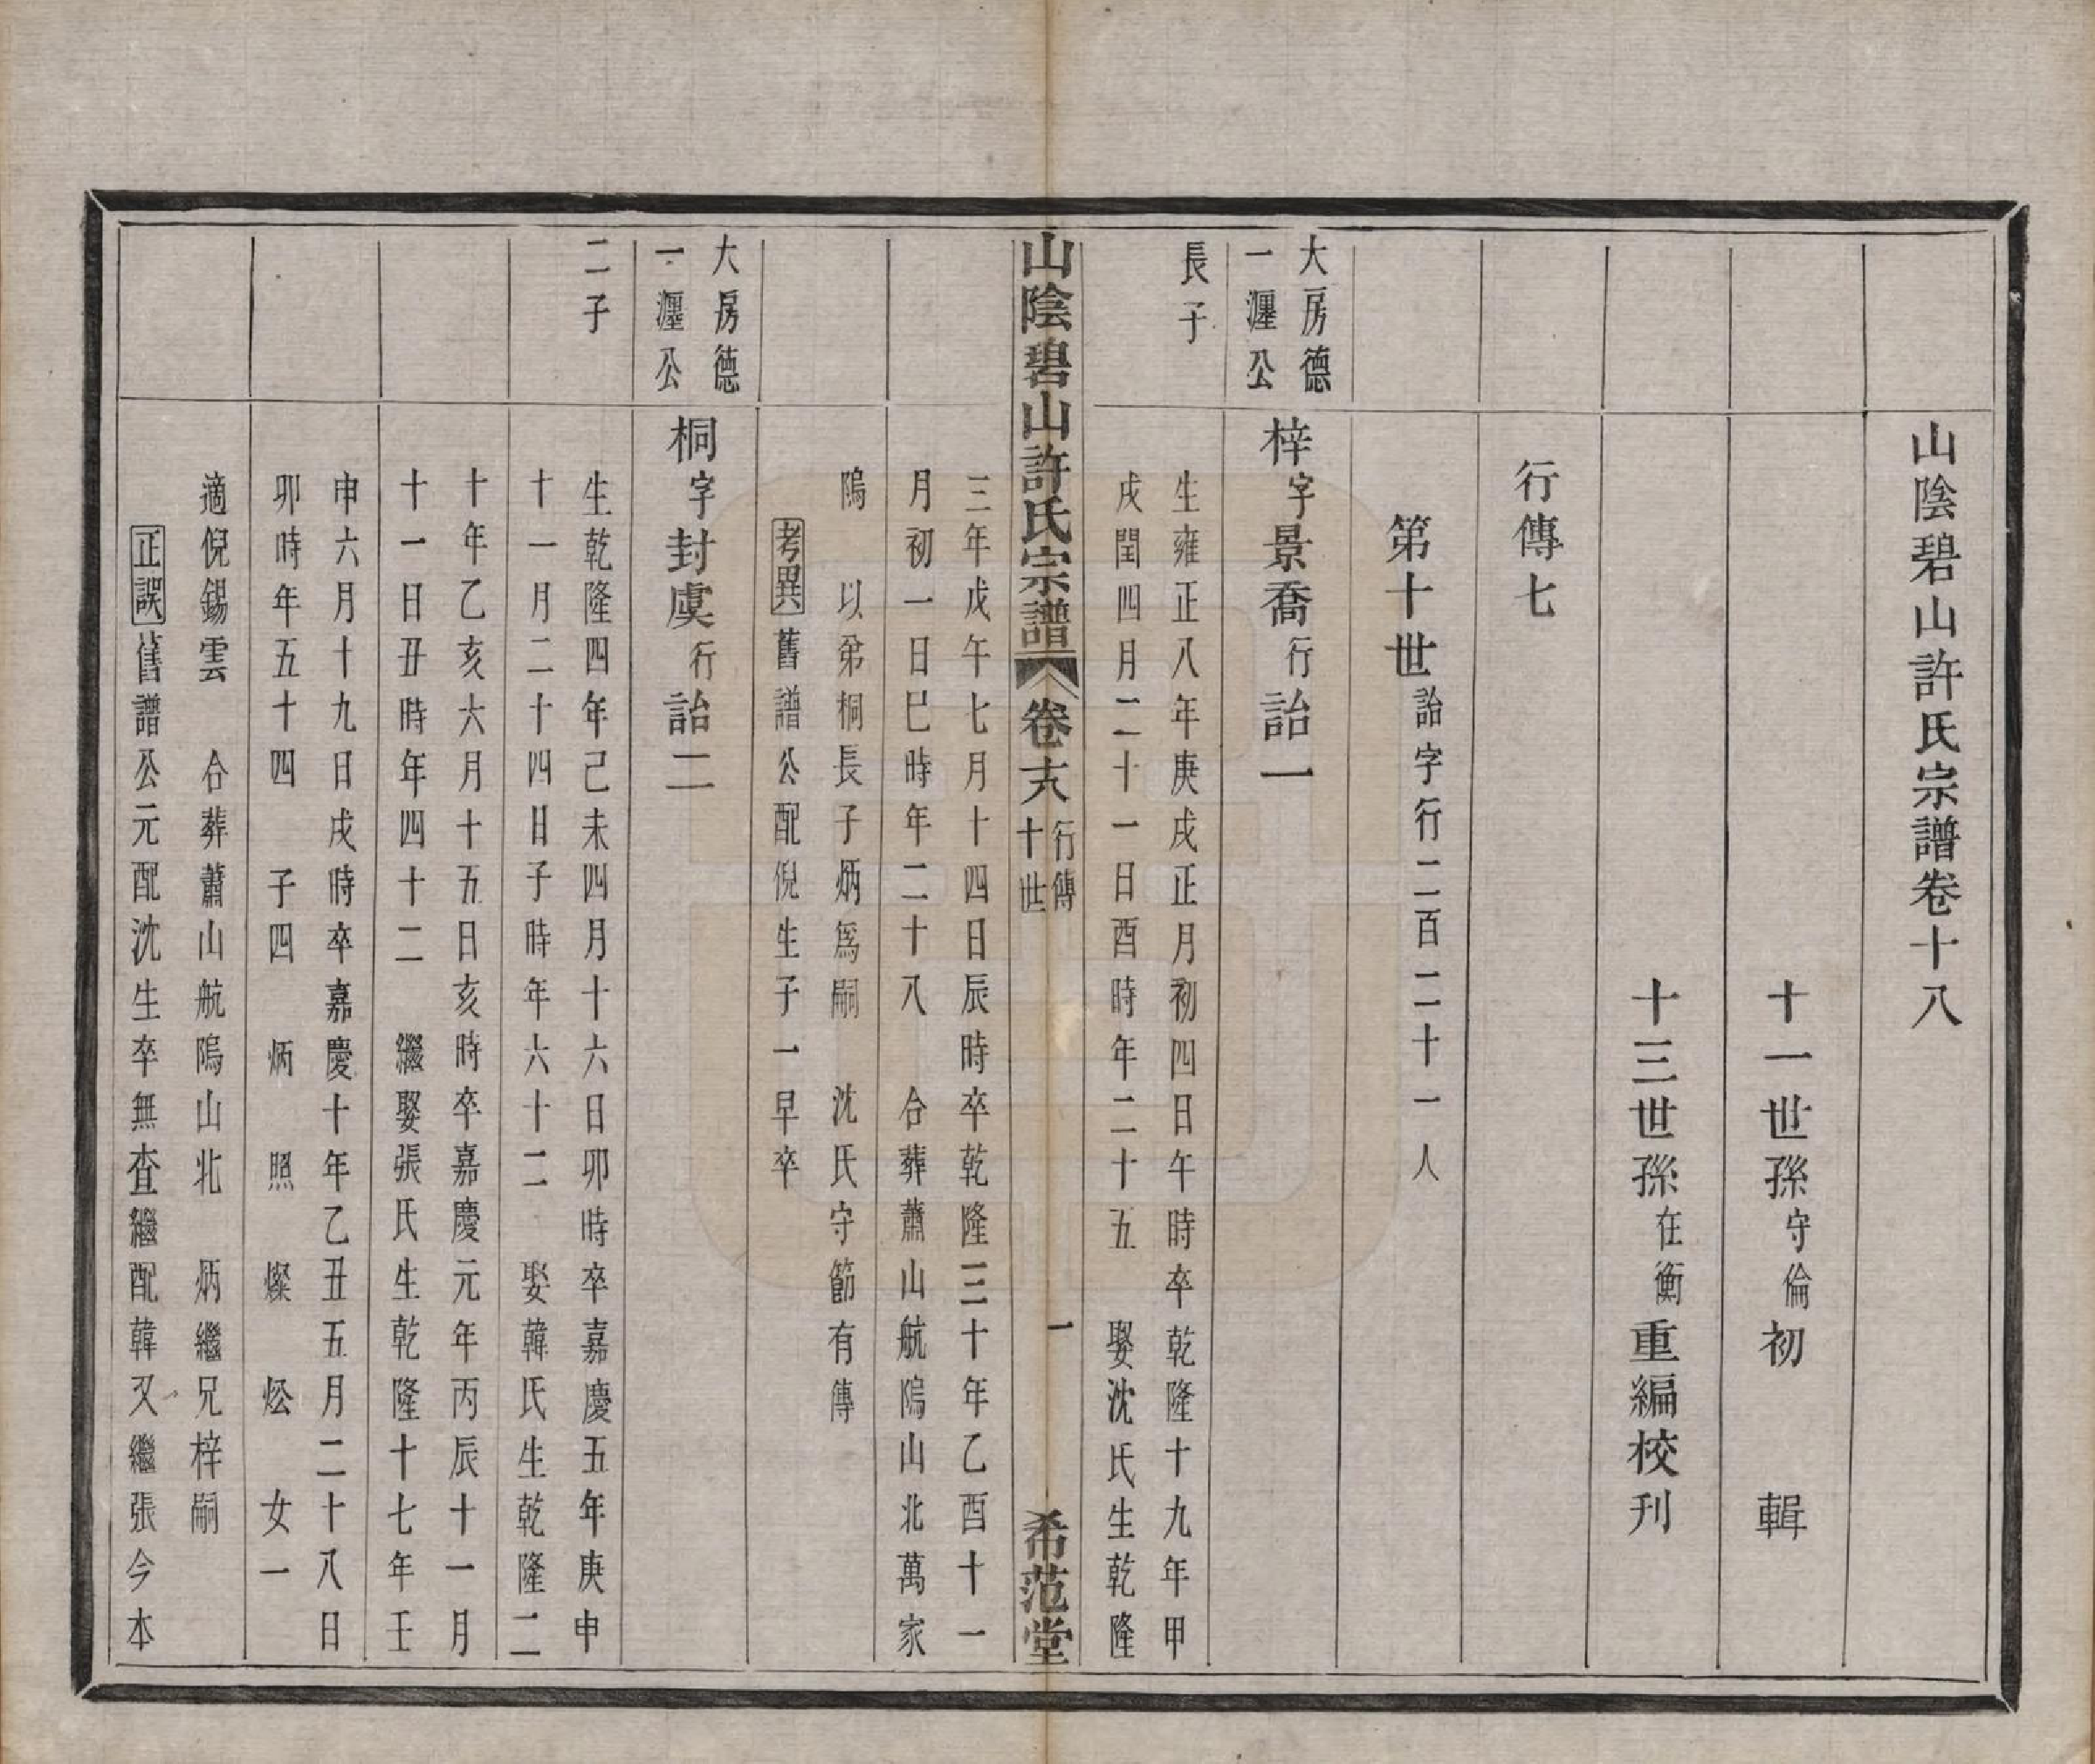 山陰碧山許氏宗譜卷十八
十一世孫守倫初　輯
十三世孫在衡重編校刊
行傳七
第十世詒字行二百二十一人
大房德
一瀍公
長子
梓字景喬行詒一
生雍正八年庚戌正月初四日午時卒乾隆十九年甲
戌閏四月二十一日酉時年二十五　娶沈氏生乾隆
山陰碧山許氏宗譜　卷十八　行傳　十世　一　希范堂
三年戊午七月十四日辰時卒乾隆三十年乙酉十一
月初一日巳時年二十八　合葬蕭山航塢山北萬家
塢　以弟桐長子炳為嗣　沈氏守節有傳
考異舊譜公配倪生子一早卒
大房德
一瀍公
二子
桐字封虞行詒二
生乾隆四年己未四月十六日卯時卒嘉慶五年庚申
十一月二十四日子時年六十二　娶韓氏生乾隆二
十年乙亥六月十五日亥時卒嘉慶元年丙辰十一月
十一日丑時年四十二　繼娶張氏生乾隆十七年壬
申六月十九日戌時卒嘉慶十年乙丑五月二十八日
卯時年五十四　子四　炳　照　燦　炂　女一
適倪錫雲　合葬蕭山航塢山北　炳繼兄梓嗣
正誤舊譜公元配沈生卒無查繼配韓又繼張今本